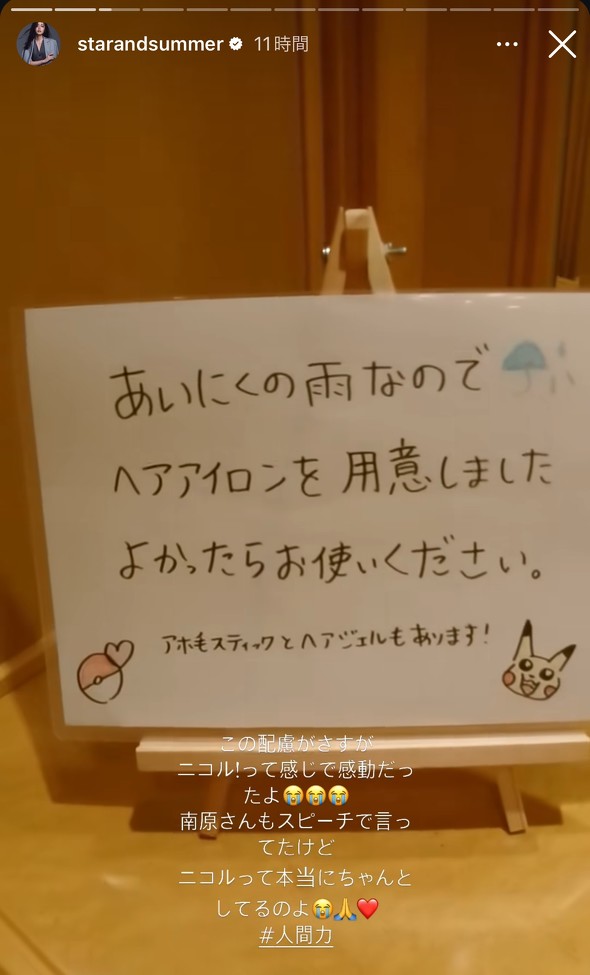 starandsummer 11時間
あいにくの雨なので
ヘアアイロンを用意しました
よかったらお使いください。
アホ毛スティックとヘアジェルもあります!
この配慮がさすが
ニコル!って感じで感動だっ
たよ😭😭😭
南原さんもスピーチで言っ
てたけど
ニコルって本当にちゃんと
してるのよ😭🙏❤️
#人間力